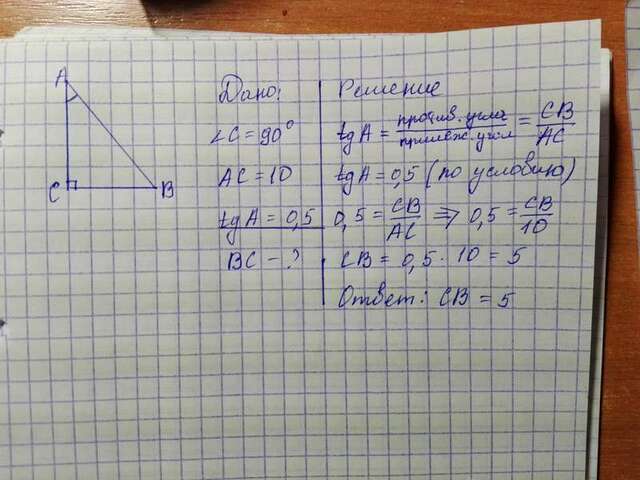 A
C
B
Дано:
∠C = 90°
AC = 10
tg A = 0,5
BC - ?
Решение
tg A = против. угла / прилеж. угл = CB / AC
tg A = 0,5 (по условию)
0,5 = CB / AC => 0,5 = CB / 10
CB = 0,5 · 10 = 5
Ответ: CB = 5